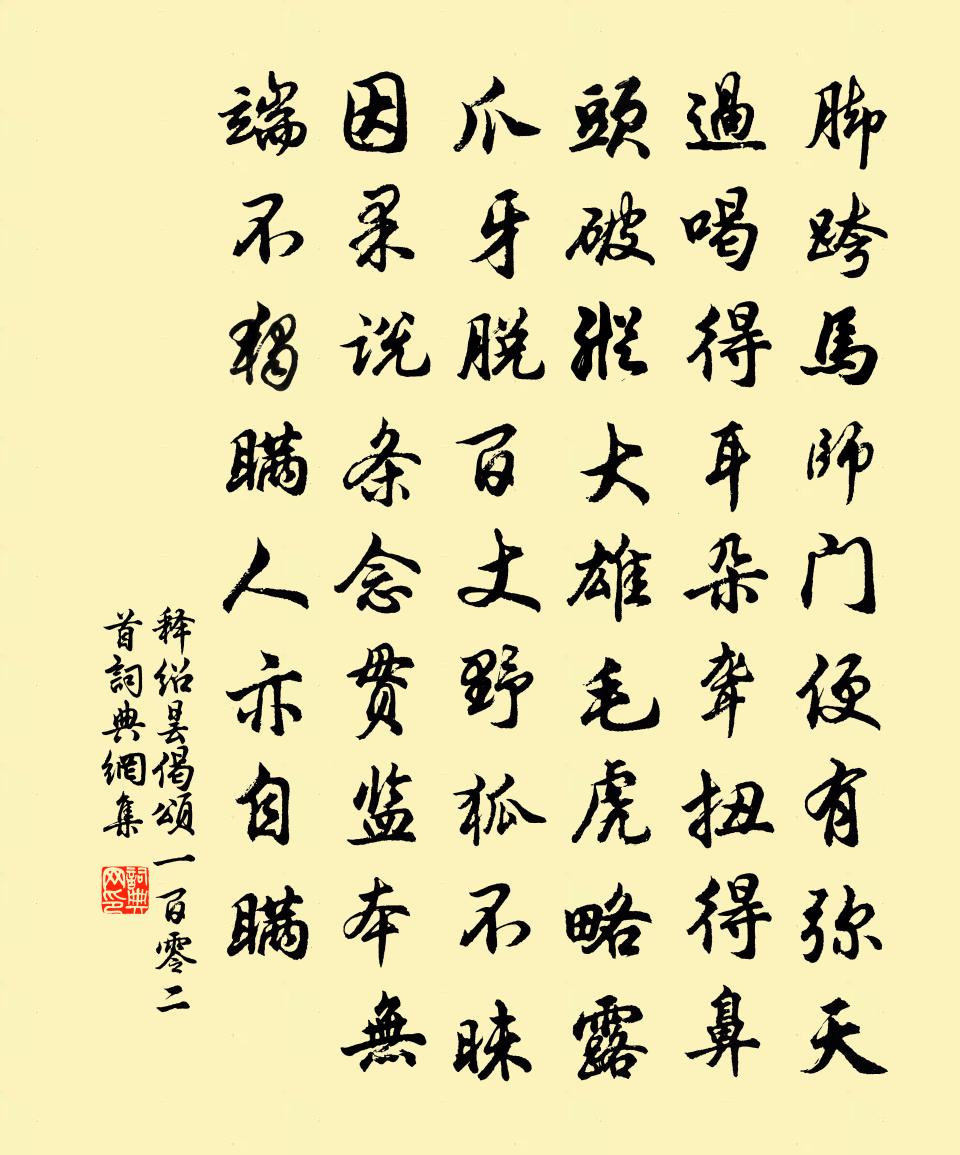 脚跨馬師门便有弥天
過喝得耳朵聋扭得鼻
頭破纵大雄毛虎略露
爪牙脱百丈野狐不昧
因果说条念贯监本無
端不独瞒人亦自瞒
释绍昙偈頌一百零二
首詞典網集
詞典网印